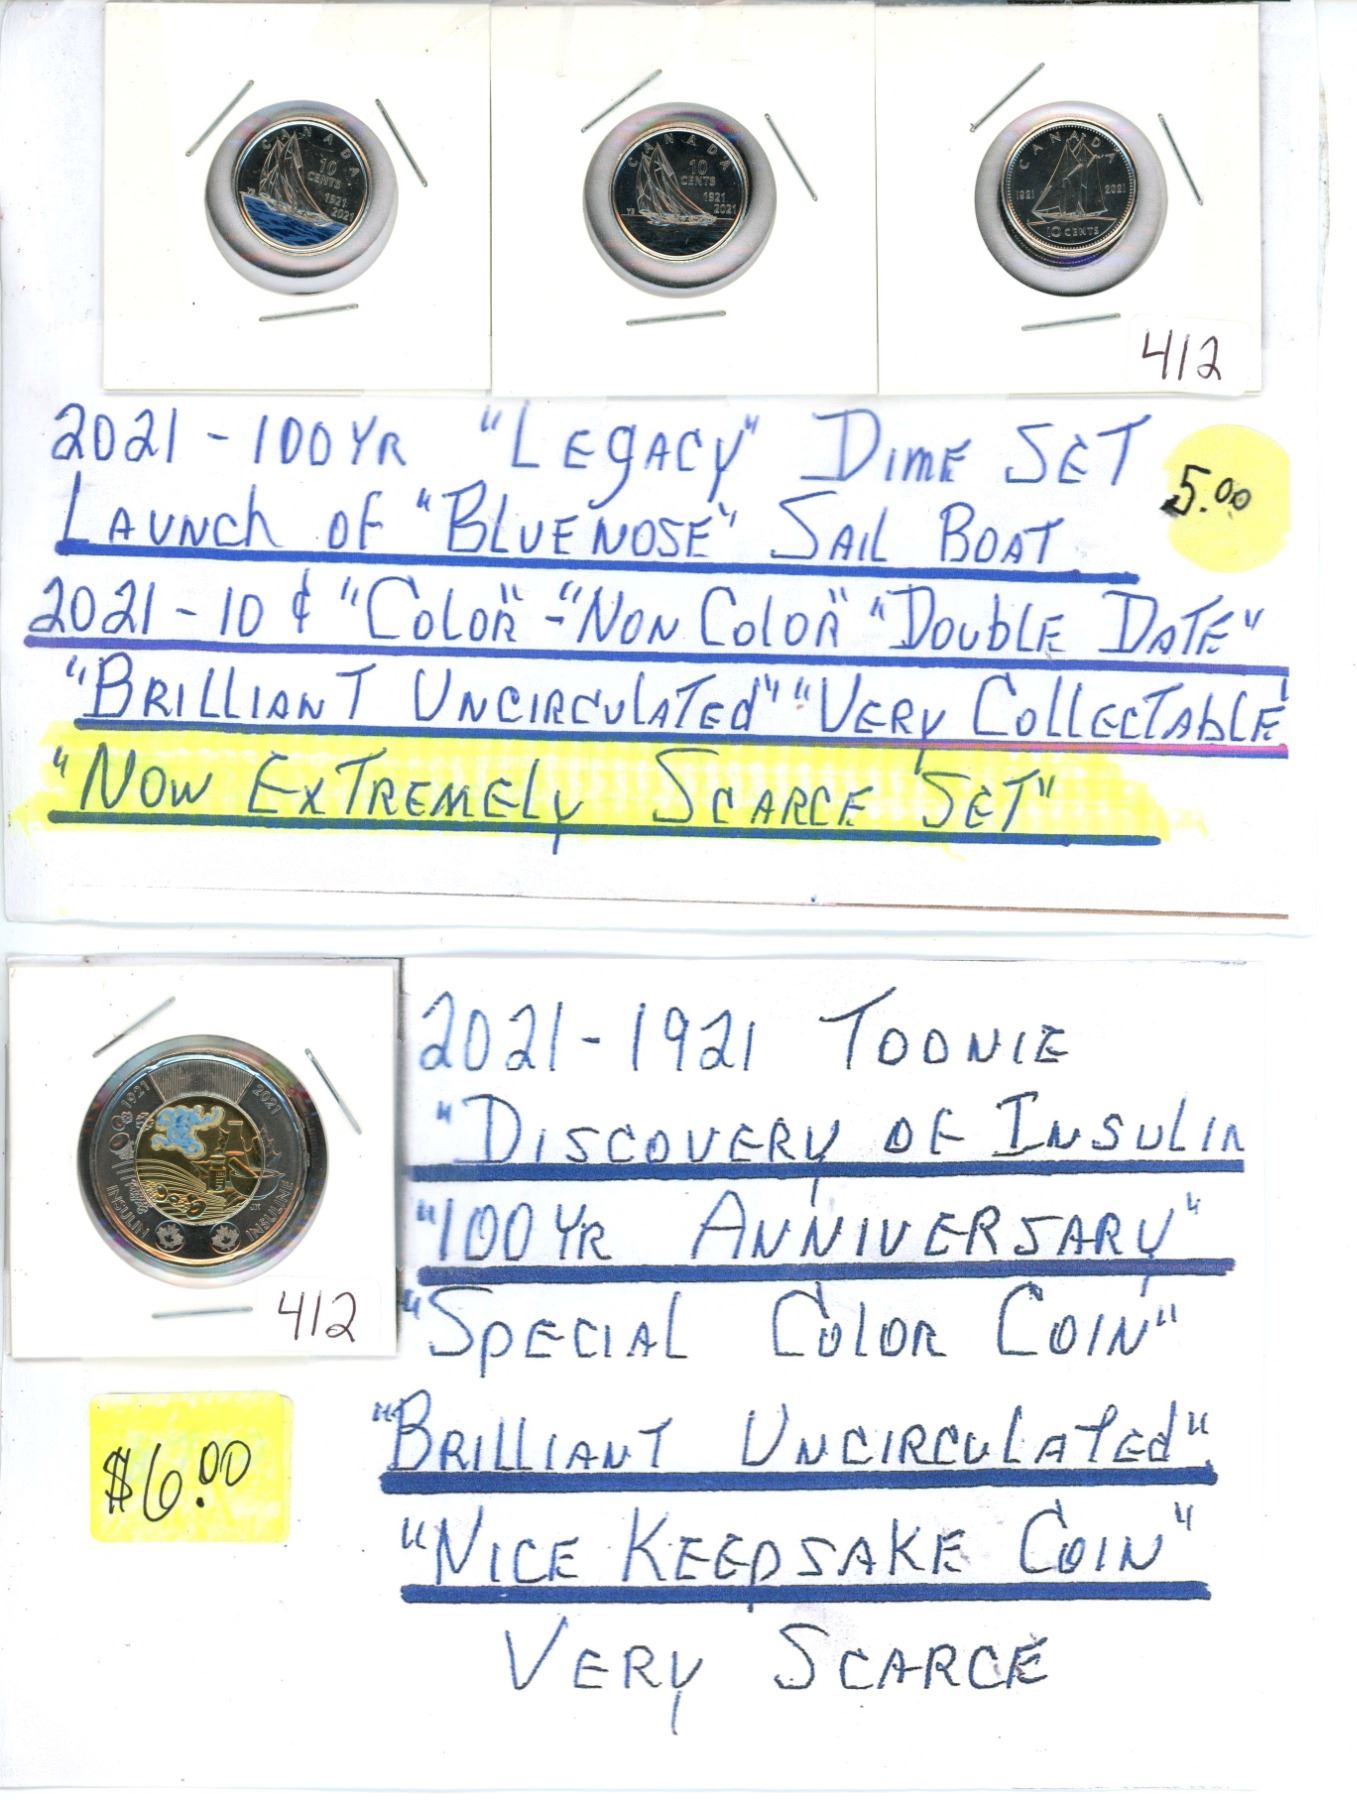 CANADA
10
CENTS
1921
2021
CANADA
10
CENTS
1921
2021
CANADA
1921 2021
10 CENTS
412
2021-100 YR "LEGACY" DIME SET
5.00
LAUNCH OF "BLUENOSE" SAIL BOAT
2021-10¢ "COLOR"-"NON COLOR" "DOUBLE DATE"
"BRILLIANT UNCIRCULATED" "VERY COLLECTABLE"
"NOW EXTREMELY SCARCE SET"
1921 2021
INSULIN INSULINE
412
2021-1921 TOONIE
"DISCOVERY OF INSULIN
"100 YR ANNIVERSARY"
"SPECIAL COLOR COIN"
"BRILLIANT UNCIRCULATED"
"NICE KEEPSAKE COIN"
VERY SCARCE
$6.00